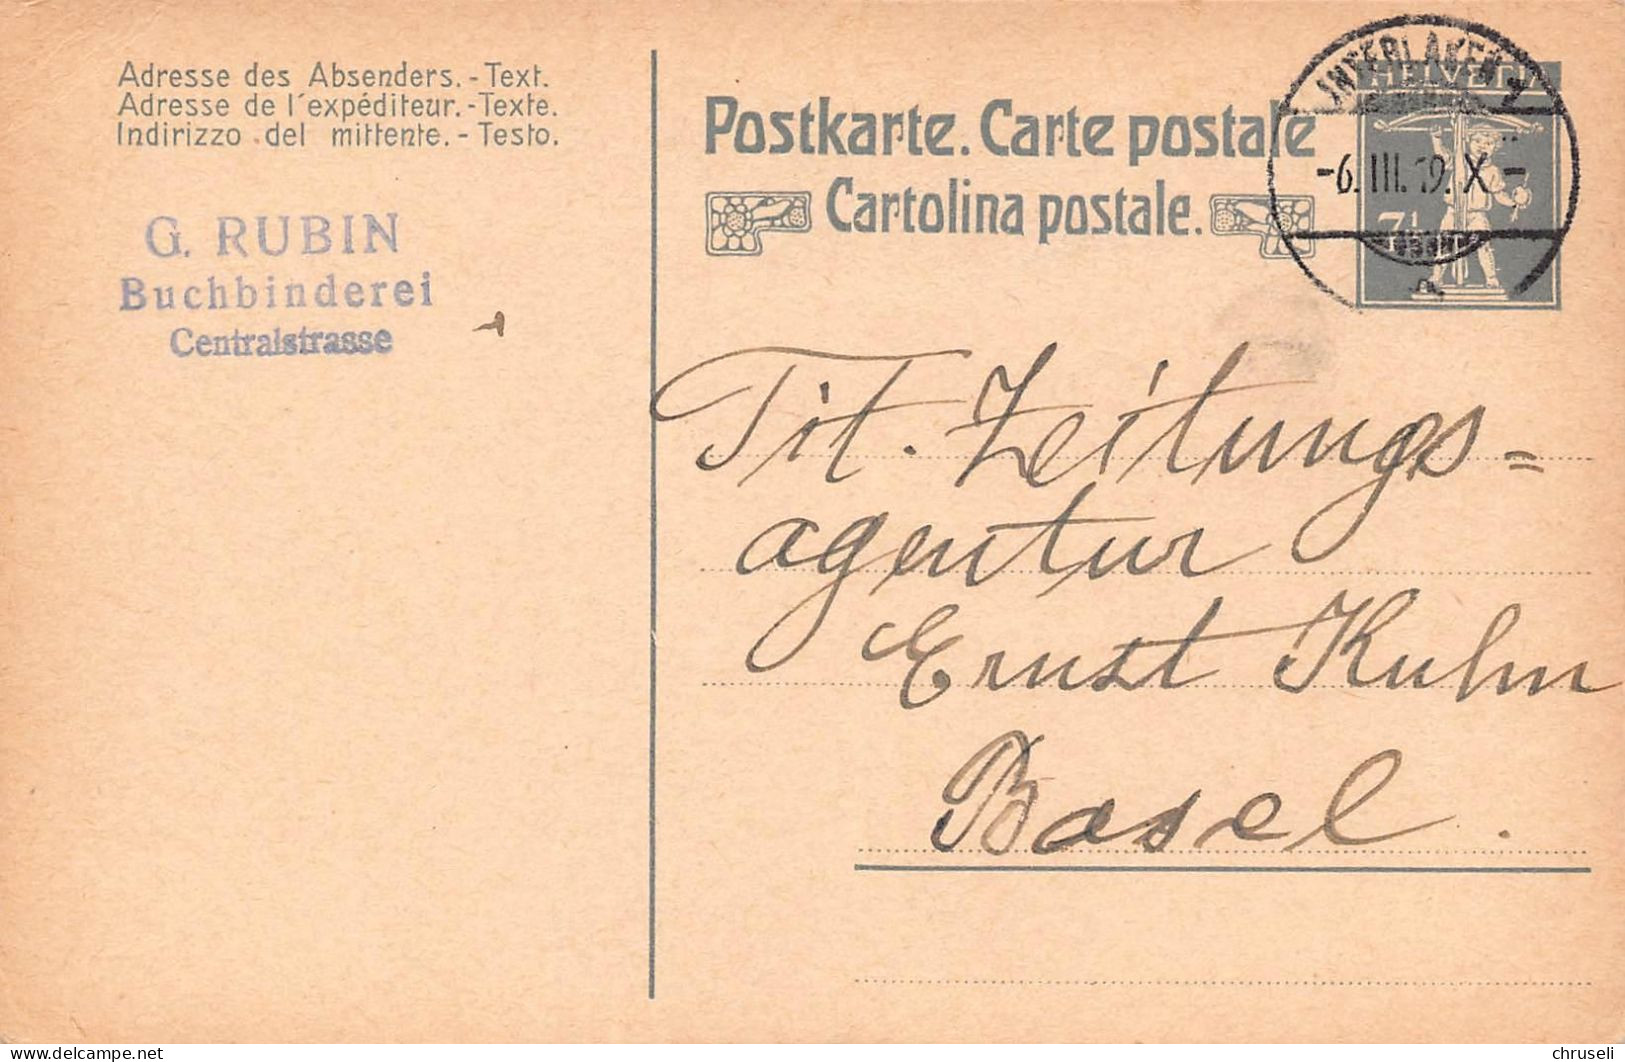 Adresse des Absenders.-Text.
Adresse de l'expéditeur.-Texte.
Indirizzo del mittente.-Testo.
G. RUBIN
Buchbinderei
Centralstrasse
Postkarte. Carte postale
Cartolina postale.
INTERLAKEN 1
-6. III. 19. X-
HELVETIA
7½
Tit. Zeitungs=
agentur
Ernst Kuhn
Basel.
delcampe.net
chruseli